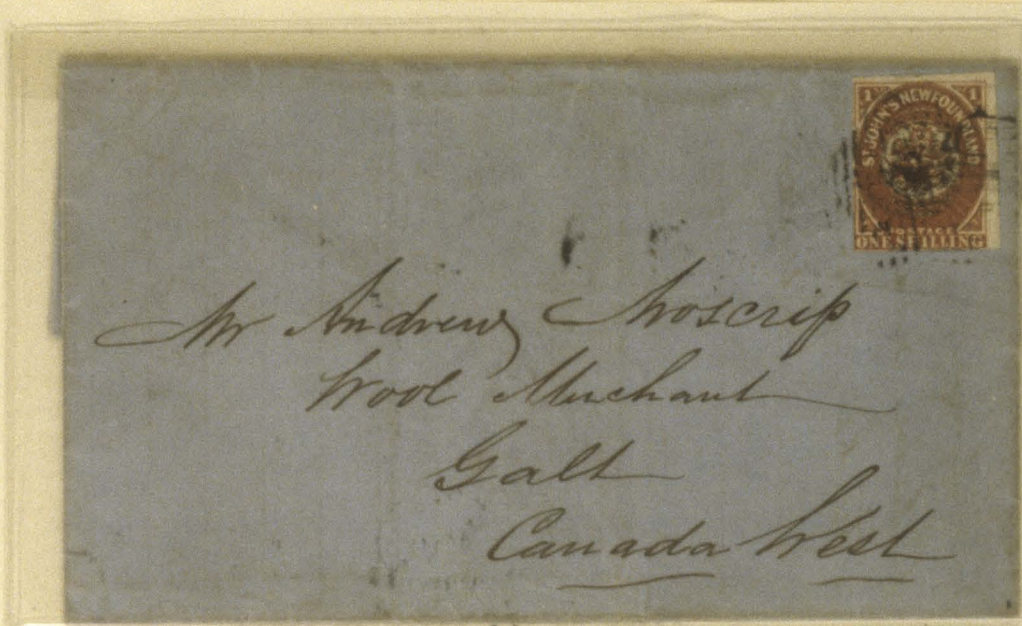 1 1
ST. JOHN'S NEWFOUNDLAND
POSTAGE
ONE SHILLING
Mr Andrew Moscrip
Wool Merchant
Galt
Canada West